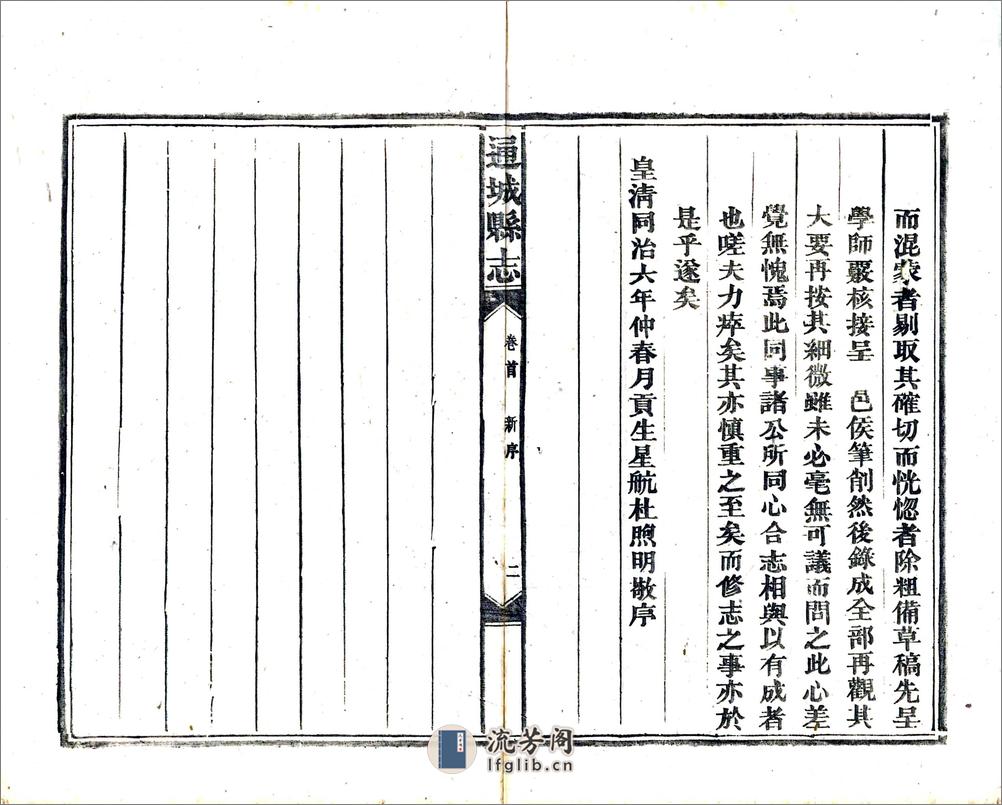 而混蒙者剔取其確切而恍惚者除粗備草稿先呈
學師覈核接呈　邑侯筆削然後錄成全部再觀其
大要再按其細微雖未必毫無可議而問之此心差
覺無愧焉此同事諸公所同心合志相與以有成者
也嗟夫力瘁矣其亦慎重之至矣而修志之事亦於
是乎遂矣
皇清同治六年仲春月貢生星航杜煦明敬序
通城縣志
卷首　新序
二
流芳阁
lfglib.cn